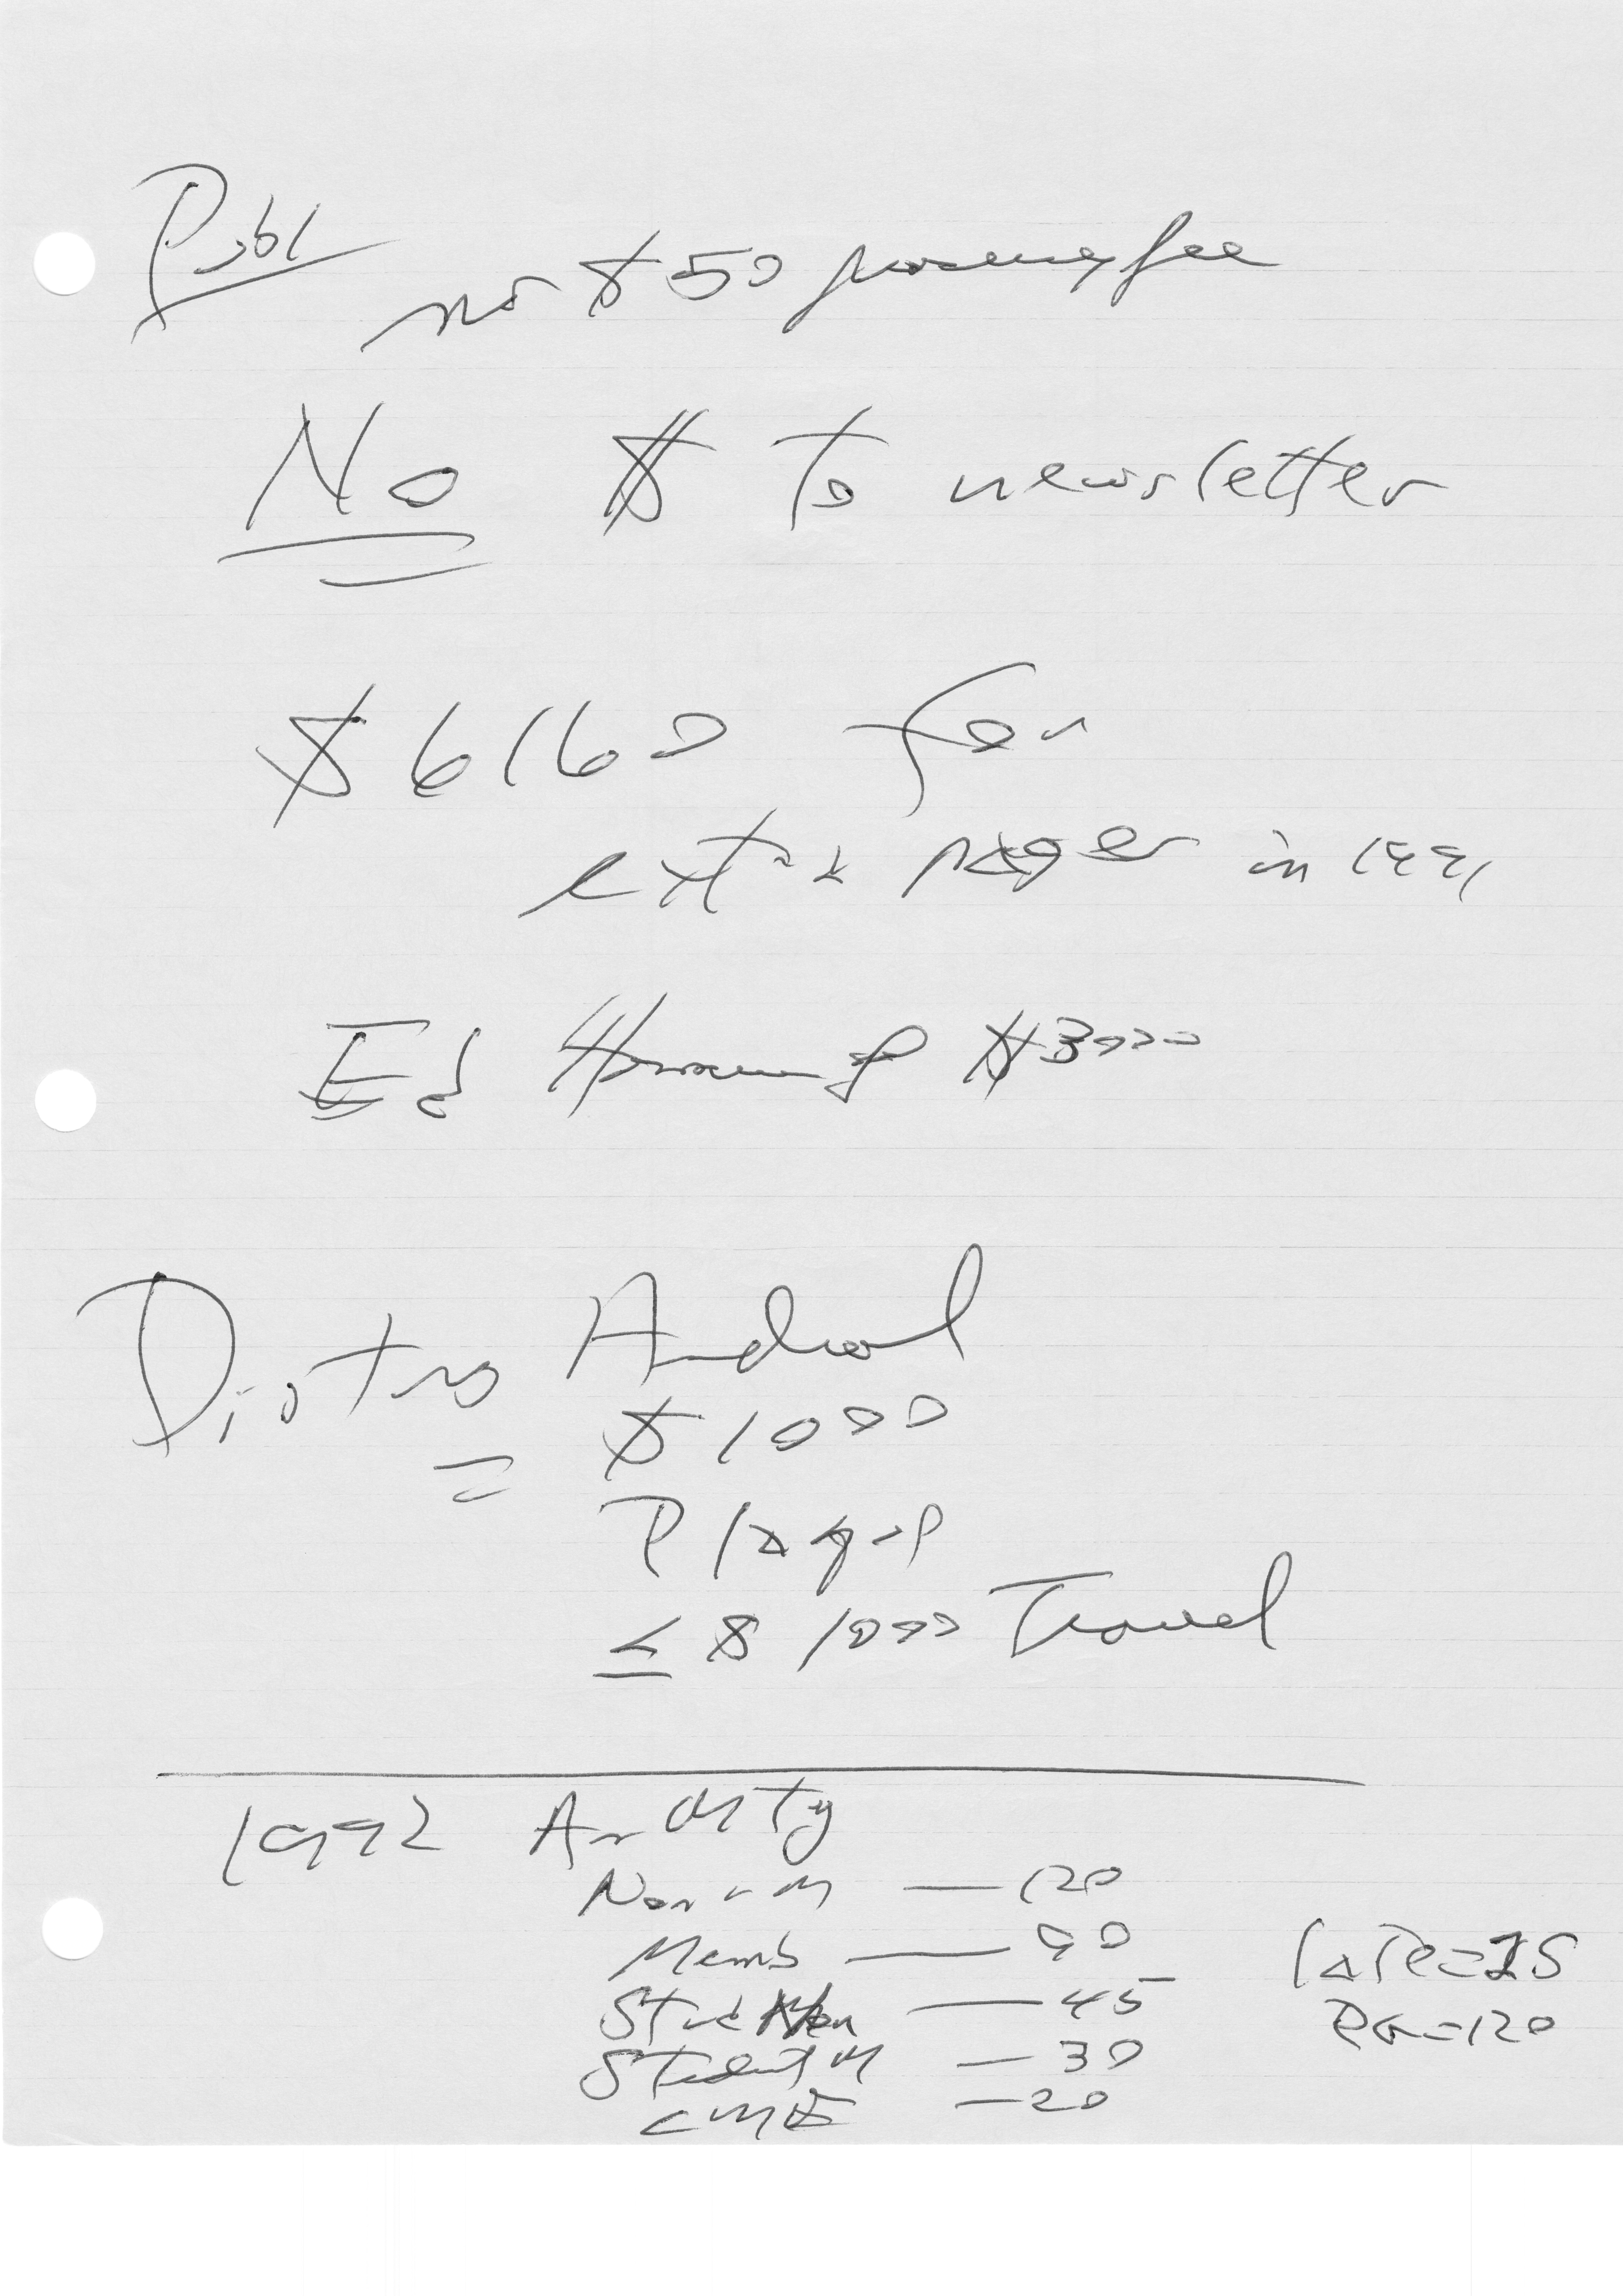 Publ
no $50 processing fee
No $ to newsletter
$6160 for
extra pages in 1991
Ed $3000
$1000
Plaque
≤ $1000 Travel
1992
Non-M — 120
Memb — 90
Stud Non — 45
Student M — 30
CME — 20
late = 25
PG = 120